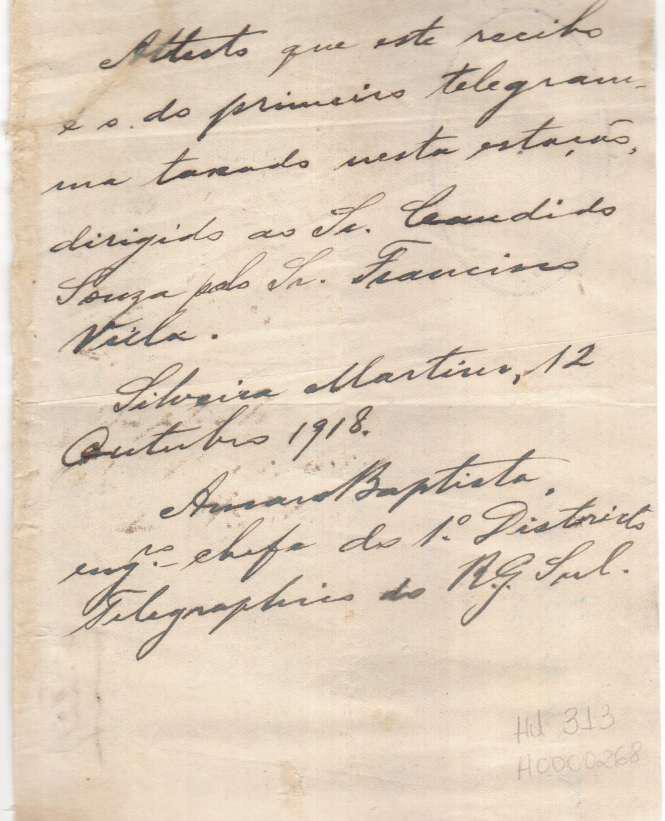 Attesto que este recibo
é o do primeiro telegram-
ma taxado nesta estação,
dirigido ao Sr. Candido
Souza pelo Sr. Francisco
Veilla.
Silveira Martins, 12
Outubro 1918.
Amaro Baptista,
engº. chefe do 1º. Districto
Telegraphico do R. G. Sul.
Hd 313
H0000268